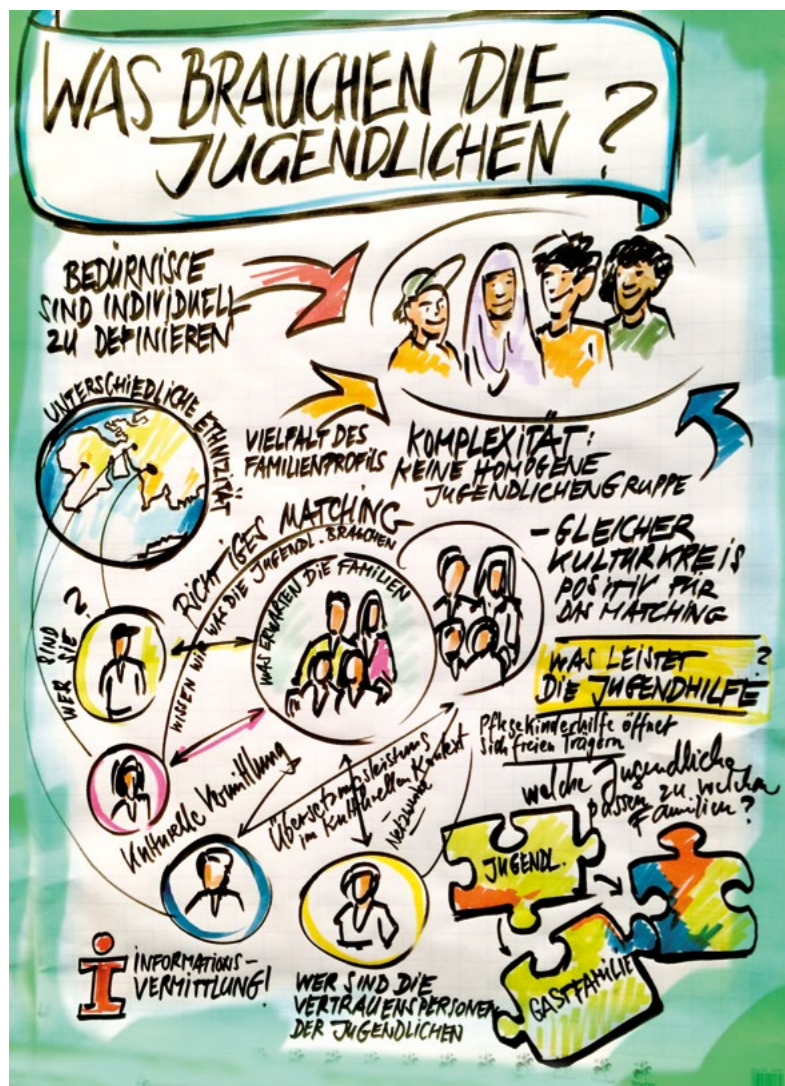 WAS BRAUCHEN DIE
JUGENDLICHEN?
BEDÜRNISSE
SIND INDIVIDUELL
ZU DEFINIEREN
UNTERSCHIEDLICHE ETHNIZITÄT
VIELFALT DES
FAMILIENPROFILS
KOMPLEXITÄT:
KEINE HOMOGENE
JUGENDLICHENGRUPPE
RICHTIGES MATCHING
WISSEN WIR WAS DIE JUGENDL. BRAUCHEN
WAS ERWARTEN DIE FAMILIEN
- GLEICHER
KULTURKREIS
POSITIV FÜR
DAS MATCHING
WER SIND SIE?
WAS LEISTET
DIE JUGENDHILFE?
Pflegekinderhilfe öffnet
sich freien Trägern
welche Jugendliche
passen zu welchen
Familien?
Kulturelle Vermittlung
Übersetzungsleistung
im kulturellen Kontext
Netzwerke
JUGENDL.
GASTFAMILIE
i INFORMATIONS-
VERMITTLUNG!
WER SIND DIE
VERTRAUENSPERSONEN
DER JUGENDLICHEN